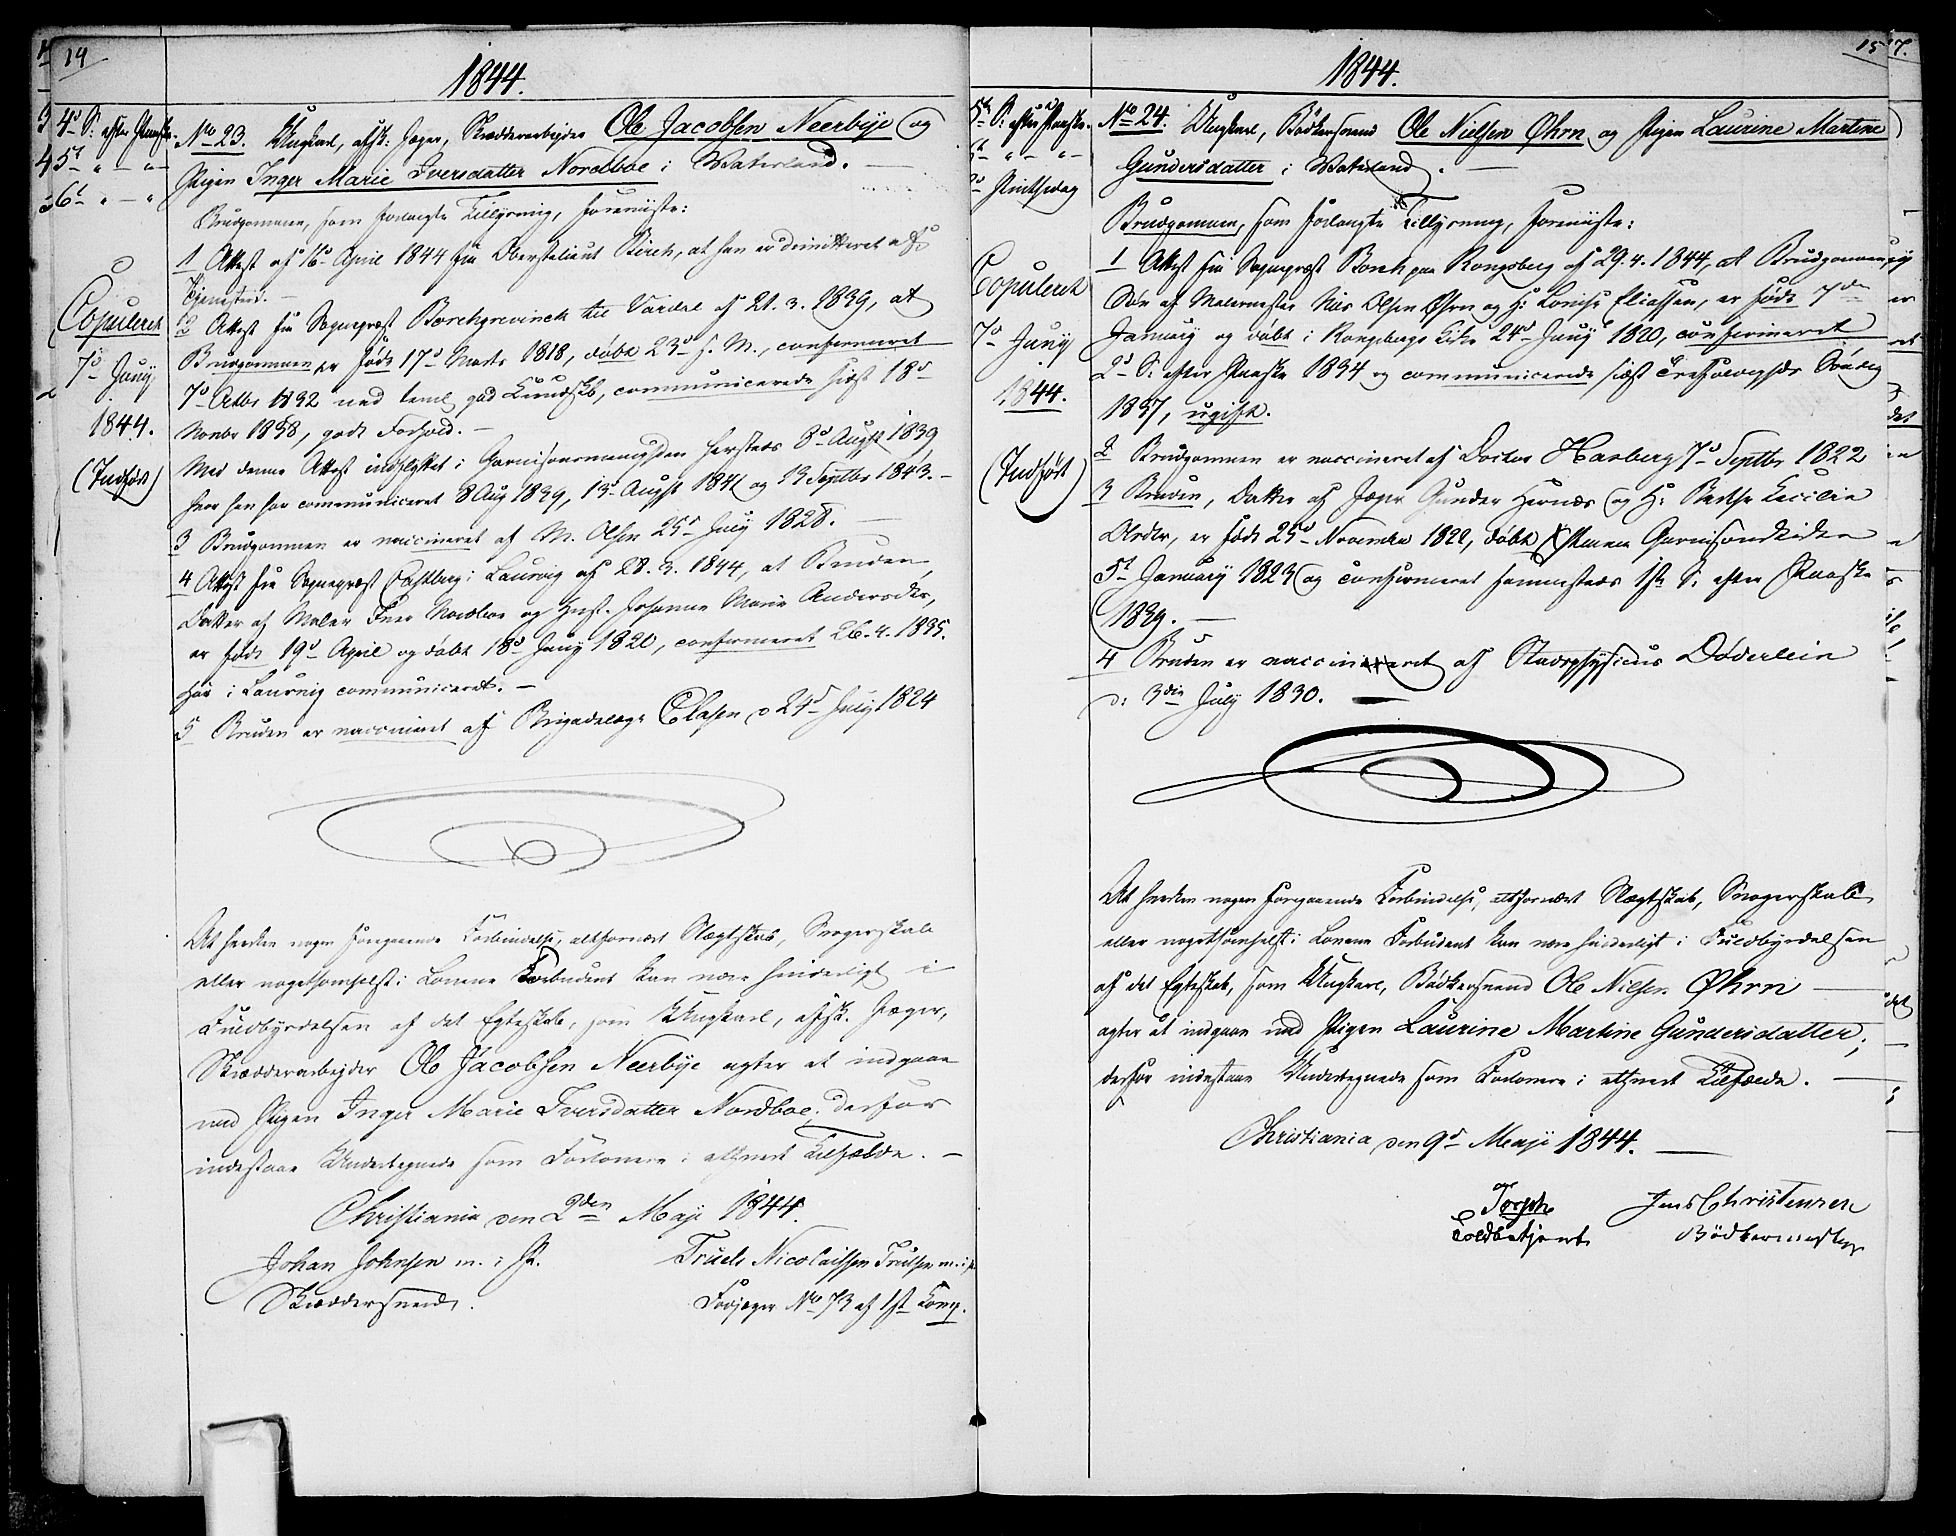 14
1844.
4d S: efter Paaske.
5t " — " —
6t " — "
No 23. Ungkarl, afsk: Jæger, Skrædderarbejder Ole Jacobsen Neerbye og
Pigen Inger Marie Iversdatter Nordboe i Waterland. —
Brudgommen, som forlangte Tillysning, foreviiste:
1 Attest af 16d April 1844 fra Oberstlieut Birch, at han er dimitteret af
Tjenesten. —
2 Attest fra Sognepræst Borchgrevinck til Vardal af 21.3.1839, at
Brudgommen er født 17d Marts 1818, døbt 23d s. M., confirmeret
7d Octbr 1832 med god Kundskb, communicerede sidst 18d
Novbr 1838, godt Forhold. —
Med denne Attest indflyttet i Garnisonsmenigheden hersteds 8d Augst 1839
hvor han har communiceret 8 Aug 1839, 13d Augst 1841 og 13 Septbr 1843. —
3 Brudgommen er vaccineret af M. Olsen 25d July 1828. —
4 Attest fra Sognepræst Castberg i Laurvig af 28.3.1844, at Bruden,
Datter af Maler Iver Nordboe og Hust. Johanne Marie Andersdtr,
er født 19d April og døbt 18d Juny 1820, confirmeret 26.4.1835.
Har i Laurvig communiceret. —
5 Bruden er vaccineret af Brigadelæge Clasen d 24d July 1824
Copuleret
7d Juny
1844.
(Indført)
At hverken nogen foregaaende Forbindelse, altfornært Slægtskab, Svogerskab
eller nogetsomhelst i Lovene Forbudent kan være hinderligt i
Fuldbyrdelsen af det Egteskab, som Ungkarl, afsk. Jæger,
Skrædderarbejder Ole Jacobsen Neerbye agter at indgaae
med Pigen Inger Marie Iversdatter Nordboe, derfor
indestaae Undertegnede som Forlovere i ethvert Tilfælde. —
Christiania den 2den Maji 1844.
Johan Johnsen m. i P.
Skræddersvend.
Truels Nicolaissen Trulsen m. i p
Fodjæger No 73 af 1st Komp.
15
1844.
5te S: efter Paaske.
6t " — " —
2d Pintsedag
No 24. Ungkarl, Bødkersvend Ole Nielsen Øhrn og Pigen Laurine Martine
Gundersdatter i Waterland. —
Brudgommen, som forlangte Tillysning, foreviiste:
1 Attest fra Sognepræst Borch paa Kongsberg af 29.4.1844, at Brudgommen,
Søn af Malermester Nils Olsen Øhrn og H: Lovise Eliassen, er født 7de
January og døbt i Kongsbergs Kirke 24d Juny 1820, confirmeret
2d S: efter Paaske 1834 og communicerede sidst Trefoldigheds Søndag
1837, ugift.
2 Brudgommen er vaccineret af Doctor Harberg 7d Septbr 1822
3 Bruden, Datter af Jæger Gunder Hernæs og H: Berthe Cecilia
Olsdtr, er født 25d November 1822, døbt i Garnisonskirken
5t January 1823 og confirmeret sammesteds 1st S: efter Paaske
1839. —
4 Bruden er vaccineret af Stadsphysicus Døderlein
d: 3die July 1830. —
Copuleret
7d Juny
1844.
(Indført)
At hverken nogen foregaaende Forbindelse, altfornært Slægtskab, Svogerskab
eller nogetsomhelst i Lovene Forbudent kan være hinderligt i Fuldbyrdelsen
af det Egteskab, som Ungkarl, Bødkersvend Ole Nielsen Øhrn —
agter at indgaae med Pigen Laurine Martine Gundersdatter;
derfor indestaae Undertegnede som Forlovere i ethvert Tilfælde. —
Christiania den 9d Maji 1844. —
Toldbetjent
Jens Christensen
Bødkermester